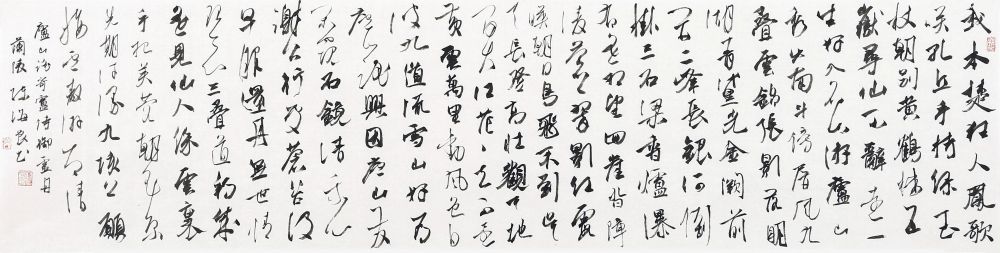 我本楚狂人鳳歌
笑孔丘手持綠玉
杖朝別黃鶴樓五
嶽尋仙不辭遠一
生好入名山游廬山
秀出南斗傍屏風九
疊雲錦張影落明
湖青黛光金闕前
開二峰長銀河倒
掛三石梁香爐瀑
布遙相望回崖沓障
凌蒼蒼翠影紅霞
映朝日鳥飛不到吳
天長登高壯觀天地
間大江茫茫去不還
黃雲萬里動風色白
波九道流雪山好為
廬山謠興因廬山發
閑窺石鏡清我心
謝公行處蒼苔沒
早服還丹無世情
琴心三疊道初成
遙見仙人綵雲裏
手把芙蓉朝玉京
先期汗漫九垓上願
接盧敖游太清
廬山謠寄盧侍御虛舟
蘭陵陳海良書